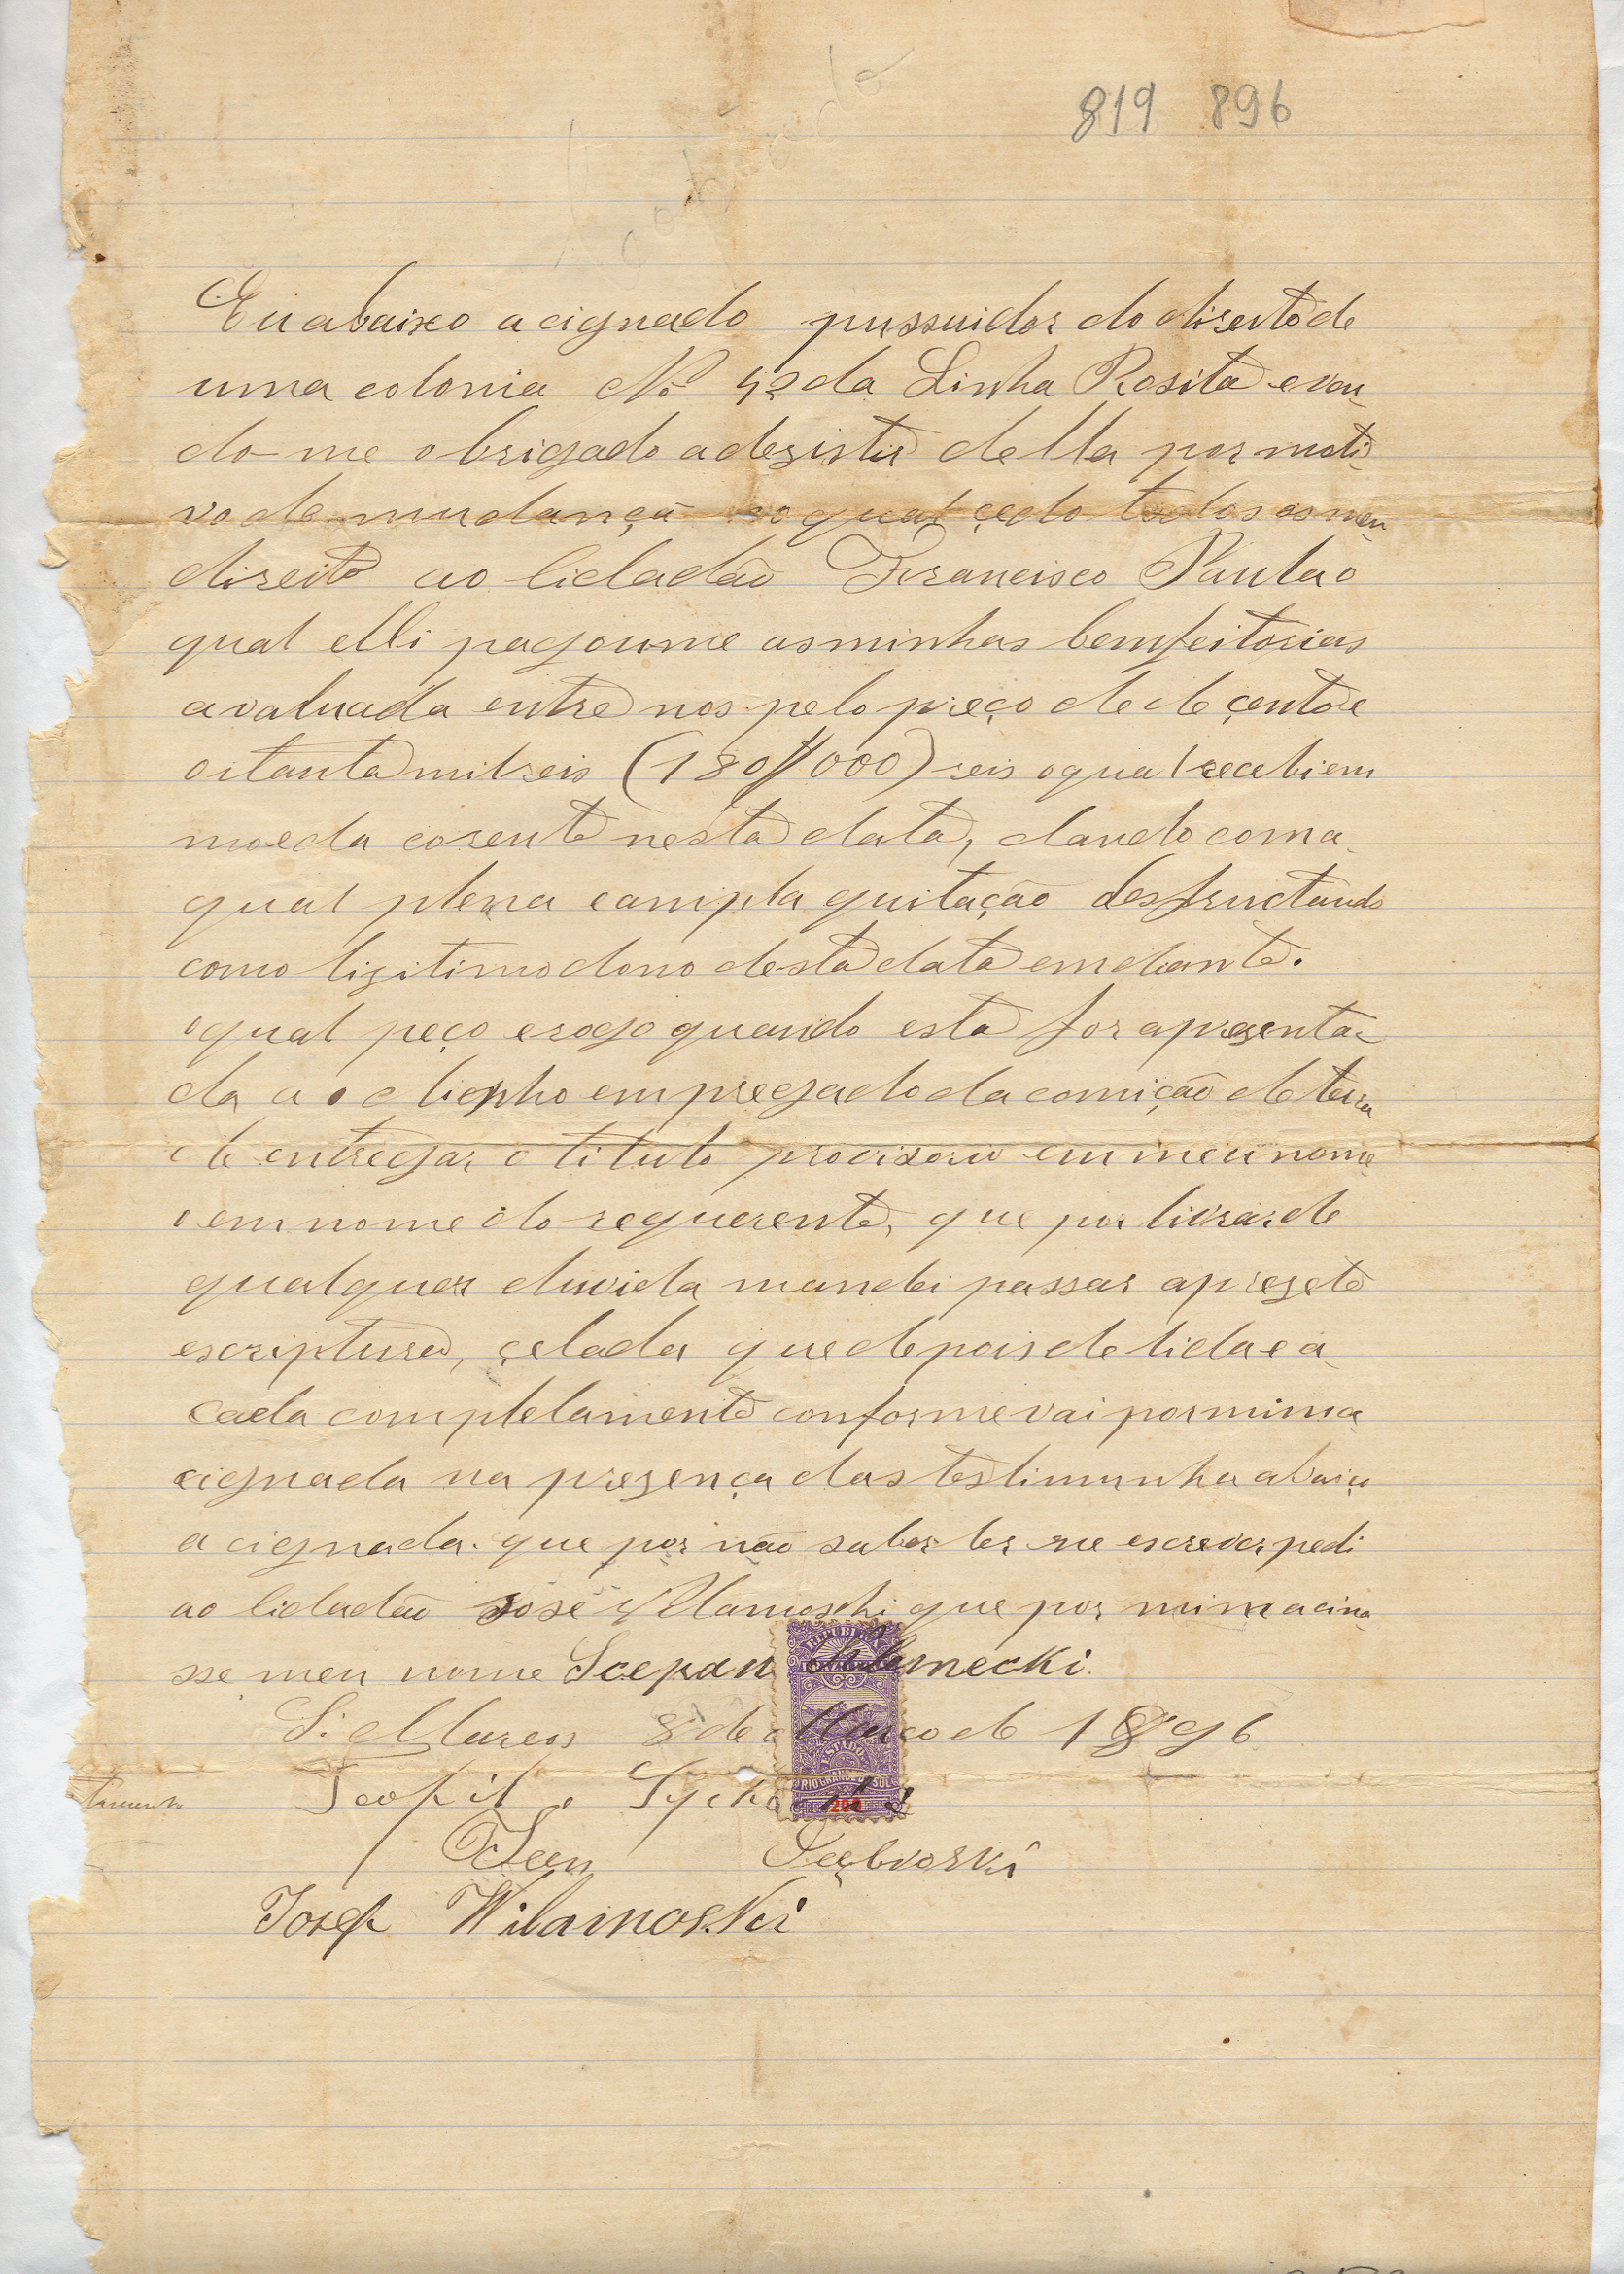 819 896
Eu abaixo acignado pussuidor do direito de
uma colonia No 42 da Linha Rosita e ven,
do-me obrigado a dezistir della por moti,
vo de mudança o qual çedo todos os meu,
direito ao Cidadão Francisco Paula o
qual elli pagoume as minhas bemfeitorias
avaluada entre nos pelo preço de de çento e
oitanta mil reis (180$000) reis o qual recebi em
moeda corente nesta data, dando com a,
qual plena e ampla quitação desfructando
como ligitimo dono desta data em diante.
o qual peço e rogo quando esta for aprezenta-
da a o dignho empregado da comição de terra
de entregar o titulo provizorio em meu nome
o em nome do requerente, que por livrar de
qualquer duvida mandei passar a prezete
escriptura, çelada que depois de lida e a,
cada completamente conforme vai por mim a,
cignada na prezença das testimunha abaixo
acignada. que por não saber ler ne escrever pedi
ao Cidadão José Vilamoski que por mim acina,
sse meu nome Scepan
S. Marcos 8 de Março de 1896
Teofil
Jan
Josef Wilamoski
REPUBLICA
ESTADO
RIO GRANDE DO SUL
200